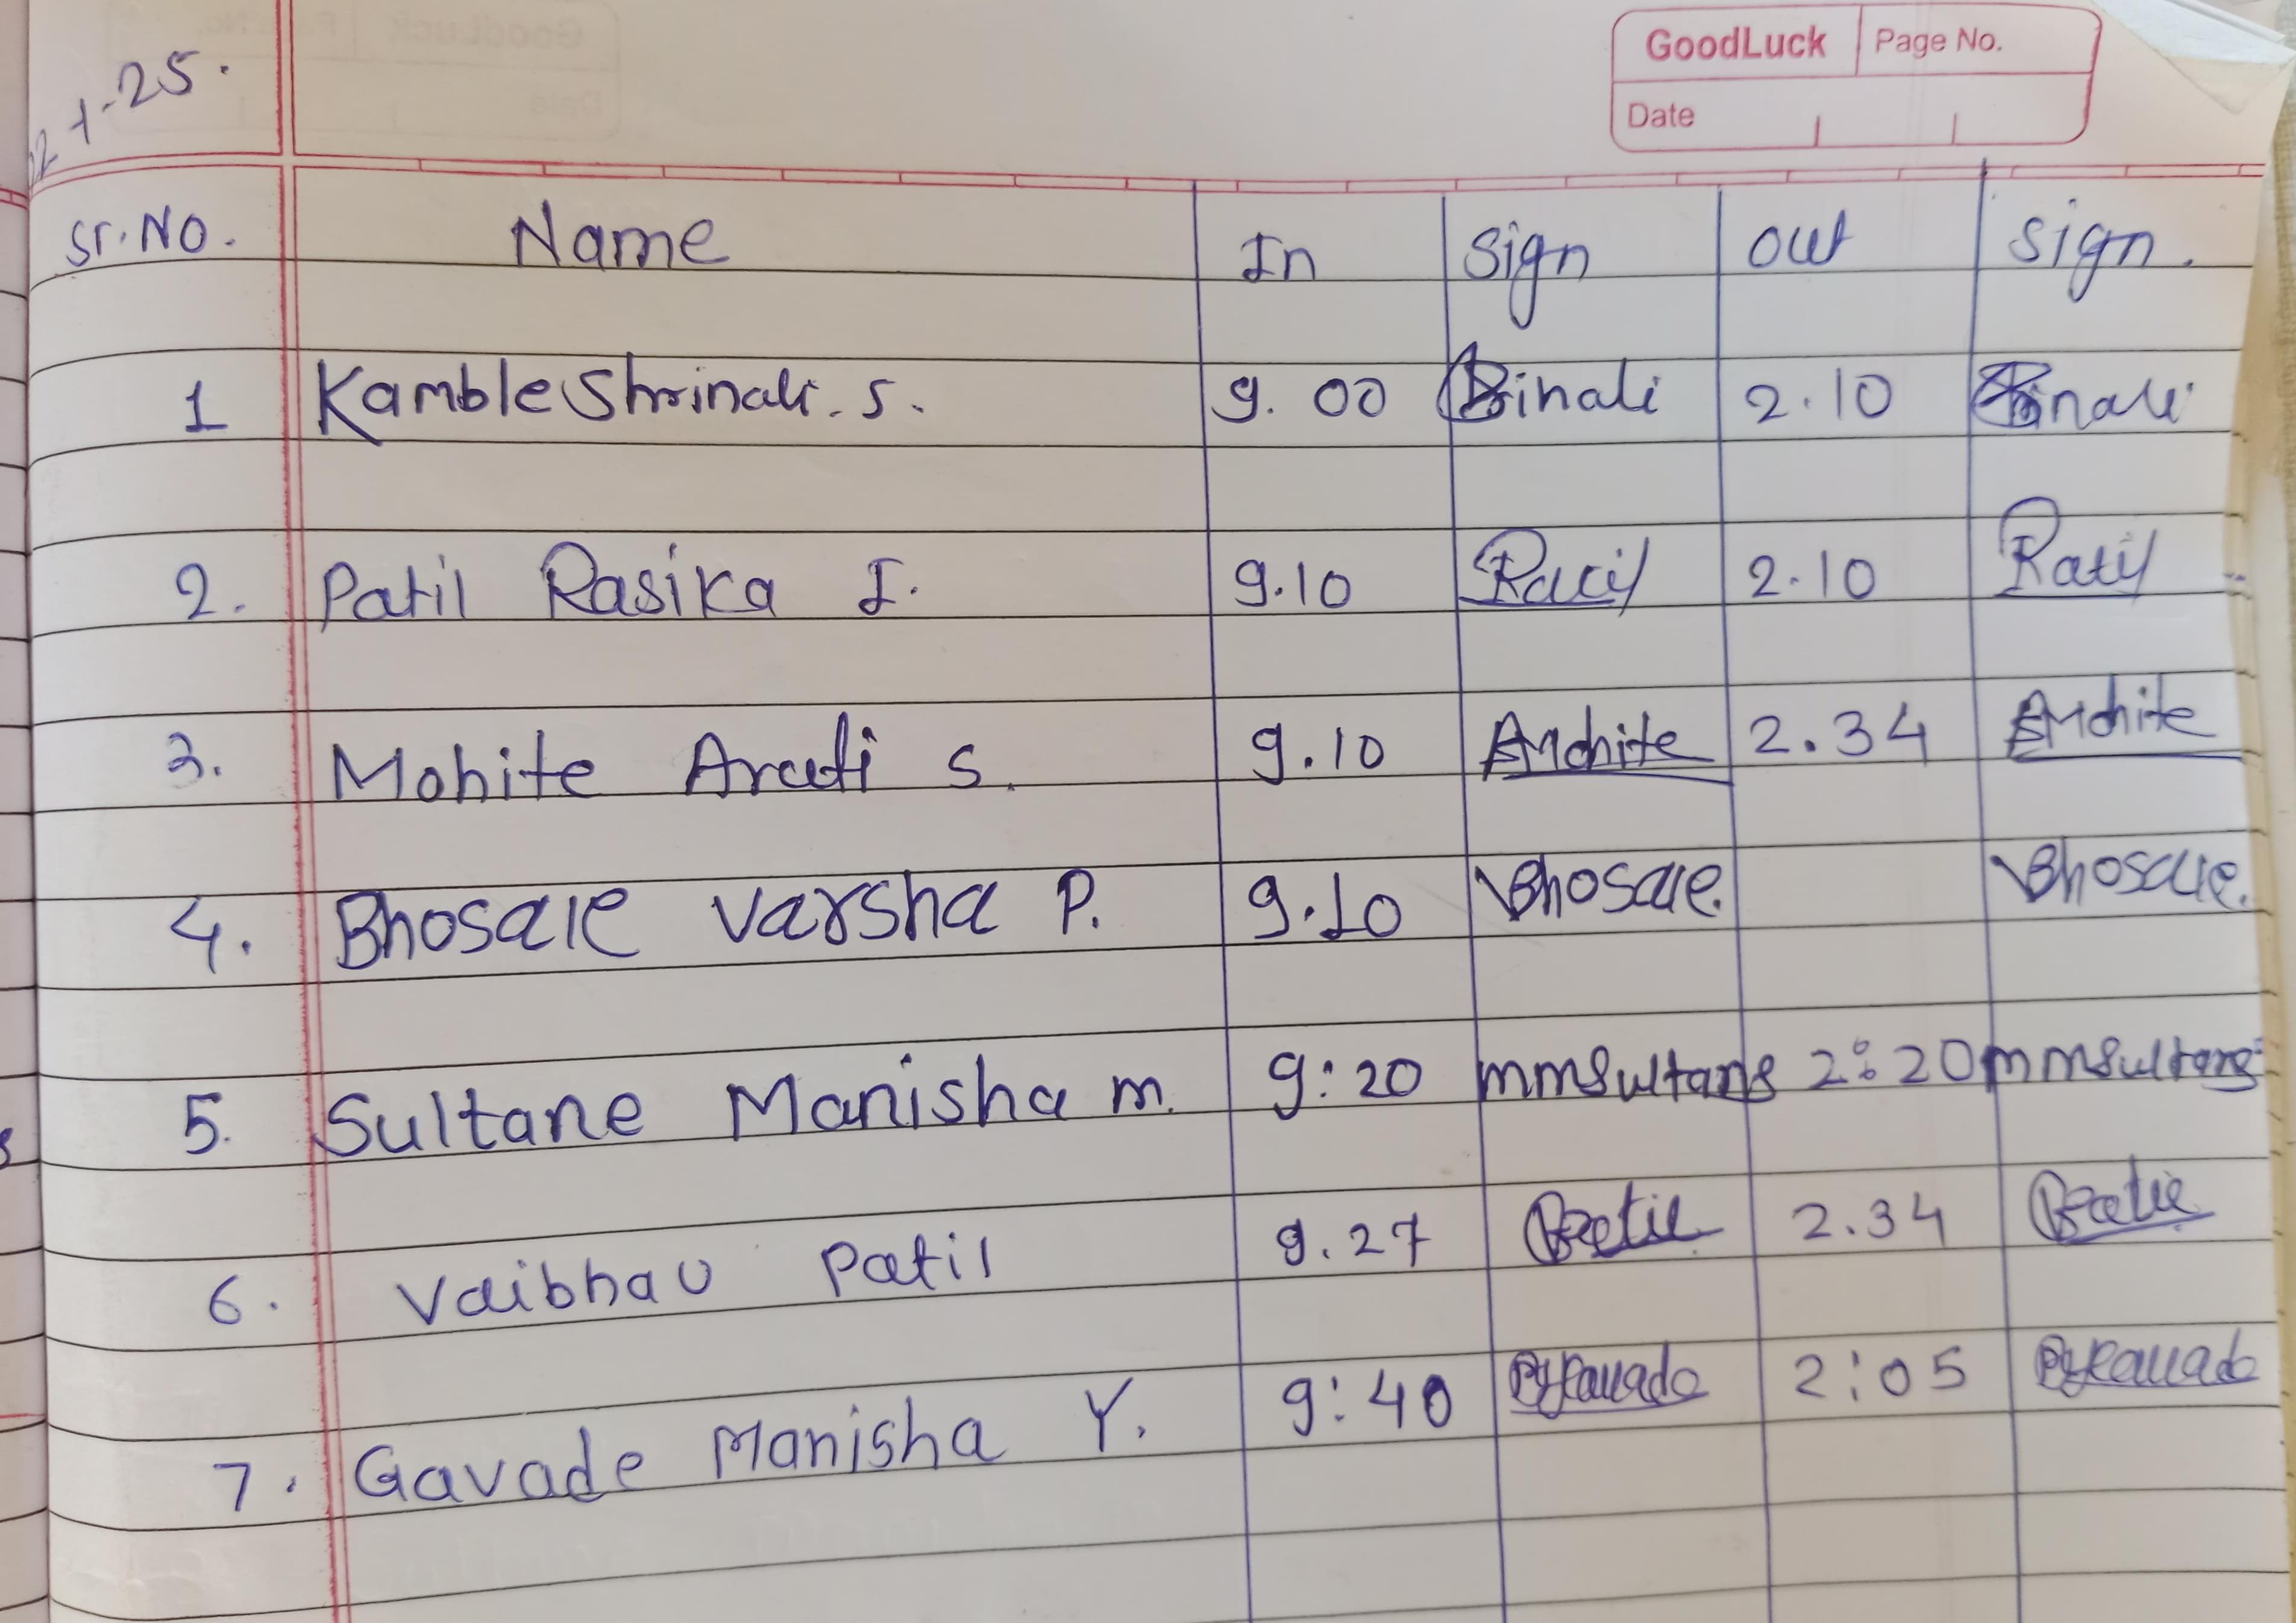 GoodLuck Page No.
Date
22-1-25.
Sr. No. Name In Sign out Sign.
1 Kamble Shrinali. S. 9.00 2.10
2. Patil Rasika I. 9.10 2.10
3. Mohite Arati S. 9.10 AMohite 2.34 AMohite
4. Bhosale Varsha P. 9.10 VBhosale. VBhosale.
5. Sultane Manisha m. 9:20 mmSultane 2:20 mmSultane
6. Vaibhav Patil 9.27 2.34
7. Gavade Manisha Y. 9:40 2:05